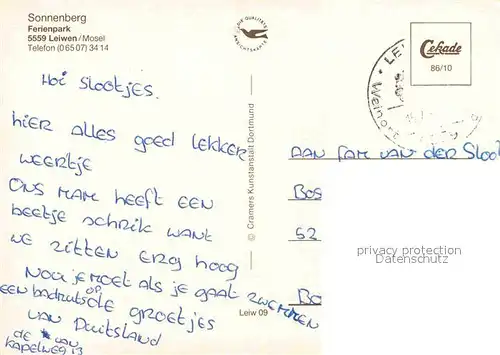 Sonnenberg
Ferienpark
5559 Leiwen/Mosel
Telefon (0 65 07) 34 14
Cekade
86/10
Hoi Slootjes.
hier alles goed lekker
weertje
Ons mam heeft een
beetje schrik want
we zitten erg hoog
Nou je moet als je gaat zwemmen
een badmuts op
de groetjes
van Duitsland
de van
kapelweg 13
© Cramers Kunstanstalt Dortmund
Leiw 09
Aan Fam van der Sloo
Bos
52
Bo
privacy protection
Datenschutz
Weinort